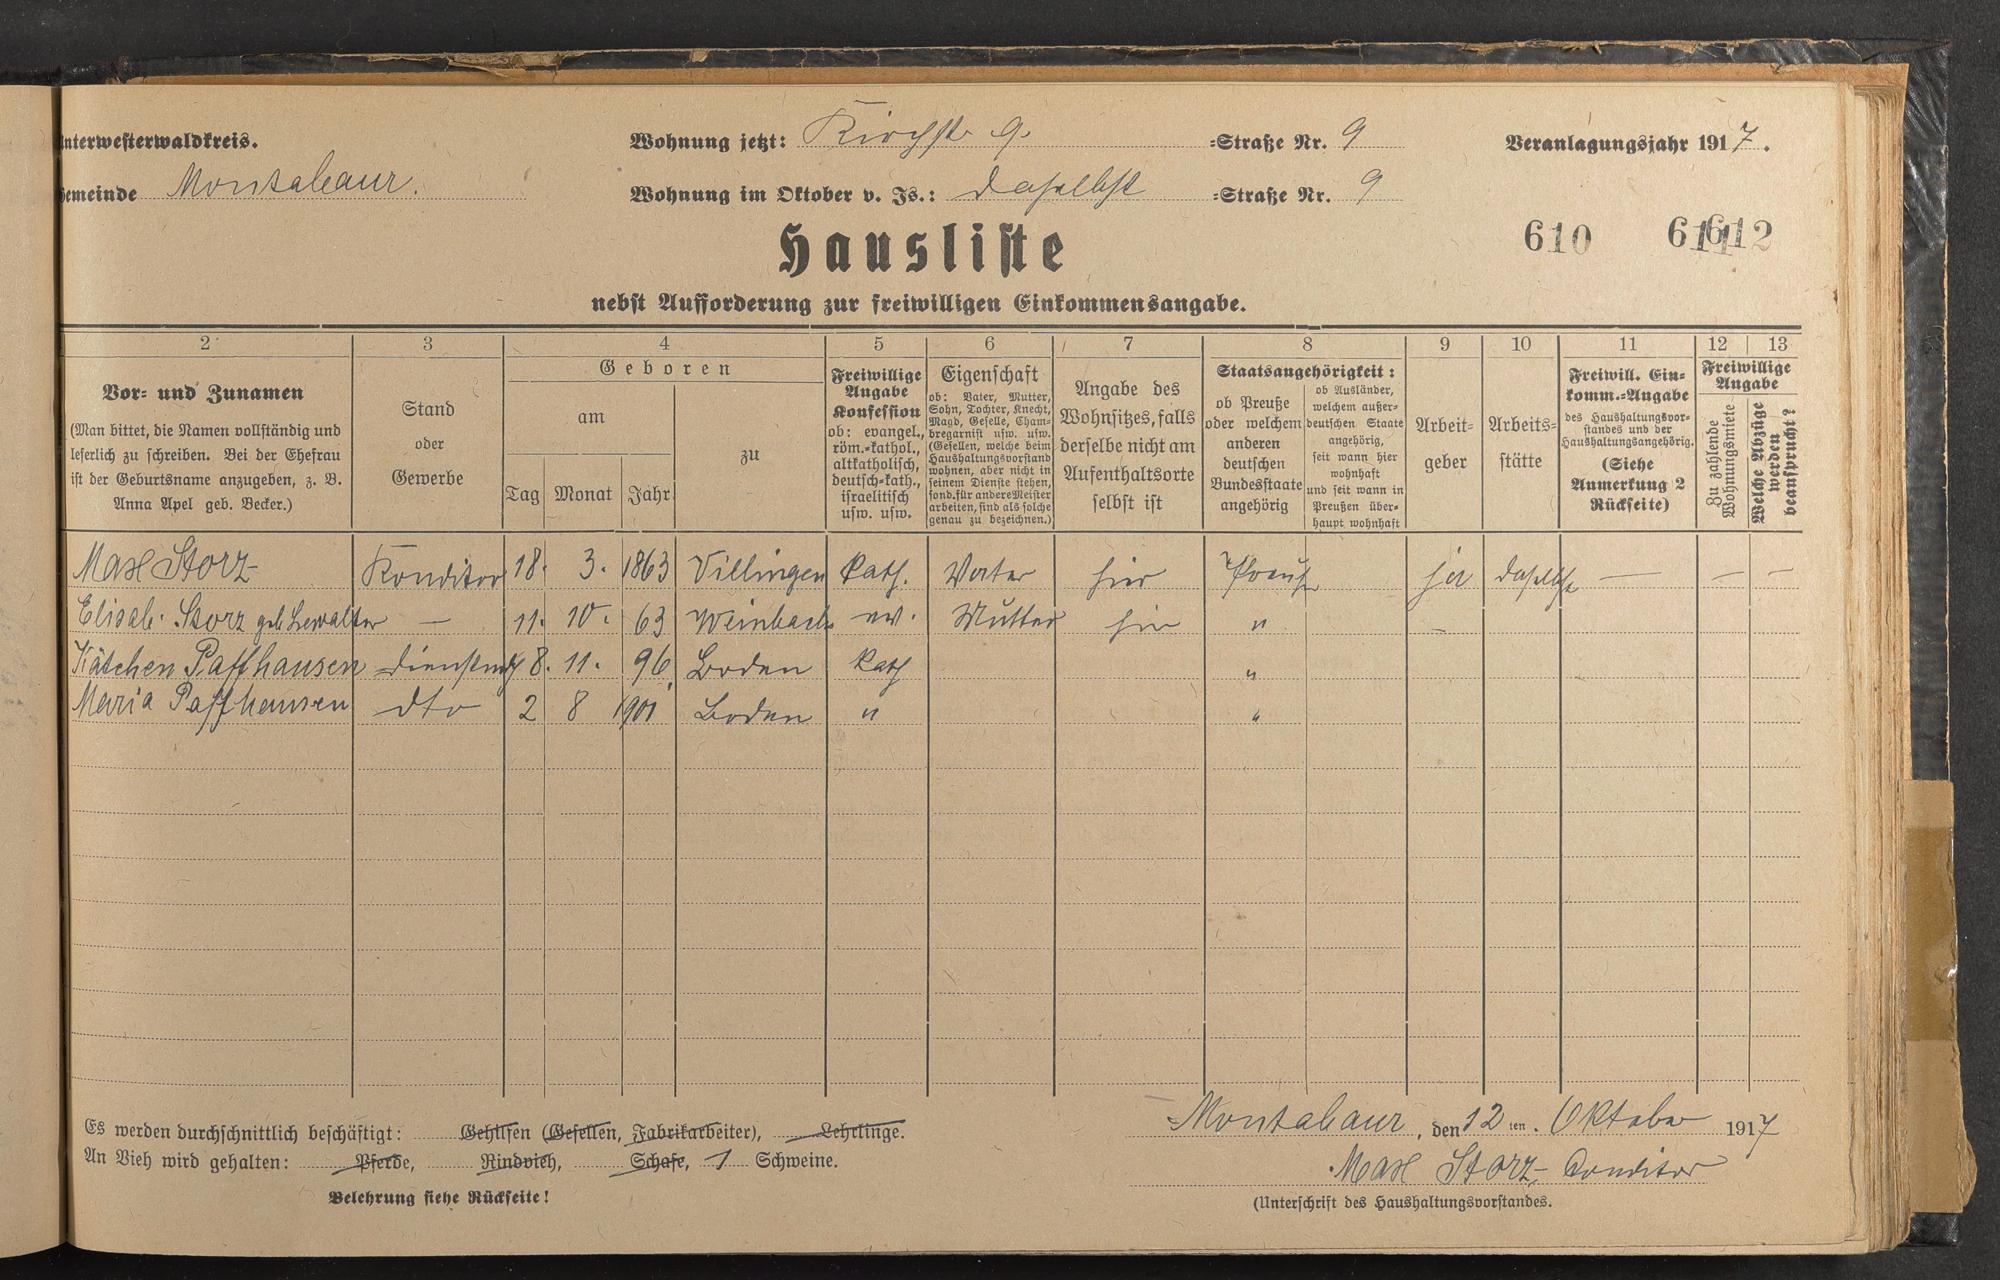 Unterwesterwaldkreis. Wohnung jetzt: Kirchstr. 9. =Straße Nr. 9 Veranlagungsjahr 1917.
Gemeinde Montabaur. Wohnung im Oktober v. Js.: daselbst =Straße Nr. 9
610 611 612
Hausliste
nebst Aufforderung zur freiwilligen Einkommensangabe.
2 3 4 5 6 7 8 9 10 11 12 13
Vor- und Zunamen
(Man bittet, die Namen vollständig und
leserlich zu schreiben. Bei der Ehefrau
ist der Geburtsname anzugeben, z. B.
Anna Apel geb. Becker.)
Stand
oder
Gewerbe
Geboren
am
Tag Monat Jahr
zu
Freiwillige
Angabe
Konfession
ob: evangel.,
röm.=kathol.,
altkatholisch,
deutsch=kath.,
israelitisch
usw. usw.
Eigenschaft
ob: Vater, Mutter,
Sohn, Tochter, Knecht,
Magd, Geselle, Cham-
bregarnist usw. usw.
(Gesellen, welche beim
Haushaltungsvorstand
wohnen, aber nicht in
seinem Dienste stehen,
sond. für andere Meister
arbeiten, sind als solche
genau zu bezeichnen.)
Angabe des
Wohnsitzes, falls
derselbe nicht am
Aufenthaltsorte
selbst ist
Staatsangehörigkeit:
ob Preuße
oder welchem
anderen
deutschen
Bundesstaate
angehörig
ob Ausländer,
welchem außer-
deutschen Staate
angehörig,
seit wann hier
wohnhaft
und seit wann in
Preußen über-
haupt wohnhaft
Arbeit-
geber
Arbeits-
stätte
Freiwill. Ein-
komm.=Angabe
des Haushaltungsvor-
standes und der
Haushaltungsangehörig.
(Siehe
Anmerkung 2
Rückseite)
Freiwillige
Angabe
Zu zahlende
Wohnungsmiete
Welche Abzüge
werden
beansprucht?
Max Storz Konditor 18. 3. 1863 Villingen kath. Vater hier Preuße ja daselbst — — —
Elisab. Storz geb. Lewalter — 11. 10. 63 Weinbach ev. Mutter hier " —
Kätchen Paffhausen Dienstmg 8. 11. 96 Boden kath "
Maria Paffhausen dto 2 8 1901 Boden " "
Es werden durchschnittlich beschäftigt: Gehilfen (Gesellen, Fabrikarbeiter), Lehrlinge.
An Vieh wird gehalten: Pferde, Rindvieh, Schafe, 1 Schweine.
Belehrung siehe Rückseite!
Montabaur, den 12ten. Oktober 1917
Max Storz, Conditor
(Unterschrift des Haushaltungsvorstandes.